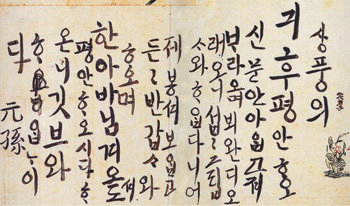 상풍의
긔후 평안ᄒᆞ오
신 문안 아ᄋᆞᆸ고져
ᄇᆞ라오며 뵈완디 오
래오니 섭섭 그립
ᄉᆞ와 ᄒᆞᄋᆞᆸ다니 어
제 봉셔 보ᄋᆞᆸ고
든든 반갑ᄉᆞ와
ᄒᆞ오며
한아바님 겨오셔도
평안ᄒᆞ오시다 ᄒᆞ
온니 깃브와
ᄒᆞᄋᆞᆸᄂᆞ이
다 元孫